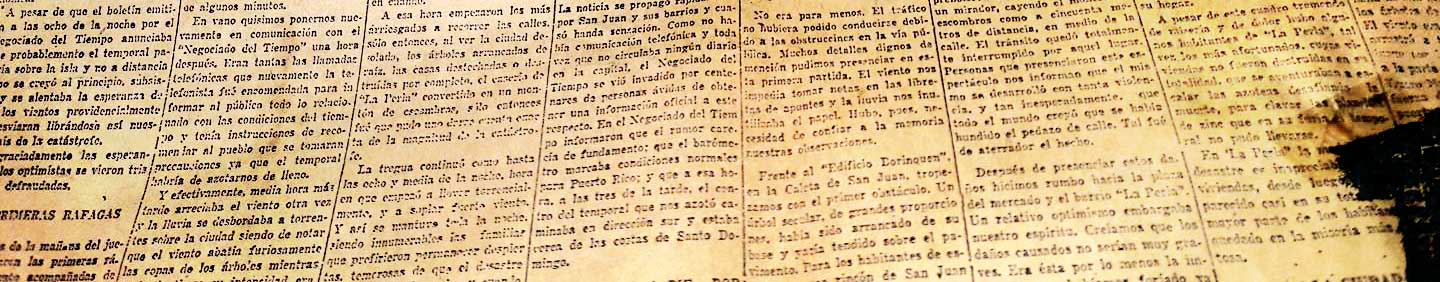 "A pesar de que el boletín emiti-
a las ocho de la noche por el
egociado del Tiempo anunciaba
e probablemente el temporal pa-
ría sobre la isla y no a distancia
mo se creyó al principio, subsis-
y se alentaba la esperanza de
los vientos providencialmente
esviaran librándose así nues-
aís de la catástrofe.
graciadamente las esperan-
los optimistas se vieron tris
defraudadas.
PRIMERAS RAFAGAS
s de la mañana del jue-
las primeras rá-
acompañadas de
de algunos minutos.
En vano quisimos ponernos nue-
vamente en comunicación con el
"Negociado del Tiempo" una hora
después. Eran tantas las llamadas
telefónicas que nuevamente la te-
lefonista fué encomendada para in
formar al público todo lo relacio-
nado con las condiciones del tiem-
po y tenía instrucciones de reco-
mendar al pueblo que se tomaran
precauciones ya que el temporal
habría de azotarnos de lleno.
Y efectivamente, media hora más
tarde arreciaba el viento otra vez
y la lluvia se desbordaba a torren-
tes sobre la ciudad siendo de notar
que el viento abatía furiosamente
las copas de los árboles mientras
A esa hora empezaron los más
arriesgados a recorrer las calles.
sólo entonces, al ver la ciudad de-
solada, los árboles arrancados de
raíz, las casas destechadas o des-
truídas por completo, el caserío de
"La Perla" convertido en un mon-
tón de escombros, sólo entonces
fué que pudo uno darse cuenta exac
ta de la magnitud de la catástro-
fe.
La tregua continuó como hasta
las ocho y media de la noche, hora
en que empezó a llover torrencial-
mente, y a soplar fuerte viento.
Y así se mantuvo toda la noche,
siendo innumerables las familias
que prefirieron permanecer despier
tas, temerosas de que el desastre
La noticia se propagó
por San Juan y sus barrios y cau-
só honda sensación. Como no ha-
bía comunicación telefónica y toda
vez que no circulaba ningún diario
en la capital, el Negociado del
Tiempo se vió invadido por cente-
nares de personas ávidas de obte-
ner una información oficial a este
respecto. En el Negociado del Tiem
po informaron que el rumor care-
cía de fundamento; que el baróme-
tro marcaba condiciones normales
para Puerto Rico; y que a esa ho-
ra, a las tres de la tarde, el cen-
tro del temporal que nos azotó ca-
minaba en dirección sur y estaba
cerca de las costas de Santo Do-
mingo.
No era para menos. El tráfico
no hubiera podido conducirse debi-
do a las obstrucciones en la vía pú-
blica. Muchos detalles dignos de
mención pudimos presenciar en es-
ta primera partida. El viento nos
impedía tomar notas en las libre-
tas de apuntes y la lluvia nos inu-
tilizaba el papel. Hubo, pues, ne-
cesidad de confiar a la memoria
nuestras observaciones.
Frente al "Edificio Borinquen",
en la Caleta de San Juan, trope-
zamos con el primer obstáculo. Un
árbol secular, de grandes proporcio
nes, había sido arrancado de su
base y yacía tendido sobre el pa-
vimento. Para los habitantes de es-
rincón de San Juan
un mirador, cayendo el
escombros como a cincuenta me-
tros de distancia, en medio de la
calle. El tránsito quedó totalmen-
te interrumpido por aquel lugar.
Personas que presenciaron este es-
pectáculo nos informan que el mis-
mo se desarrolló con tanta violen-
cia y tan inesperadamente, que
todo el mundo creyó que se había
hundido el pedazo de calle. Tal fué
de aterrador el hecho.
Después de presenciar estos da-
ños hicimos rumbo hacia la plaza
del mercado y el barrio "La Perla".
Un relativo optimismo embargaba
nuestro espíritu. Creíamos que los
daños causados no serían muy gra-
ves. Era ésta por lo menos la im-
su hogar.
A pesar de este cuadro tremendo
de miseria y de dolor hubo algu-
nos habitantes de "La Perla", tal
vez los más afortunados, cuyas vi-
viendas no fueron destruídas en su
totalidad, que se aventuraban a es-
calar las azoteas, desafiando la
muerte, para clavar
de zinc que en su furia el tempo-
ral no pudo llevarse.
En "La Perla" la
desastre es
viviendas, desde luego,
parecido casi en su
mayor parte de los habitantes
quedado en la miseria más